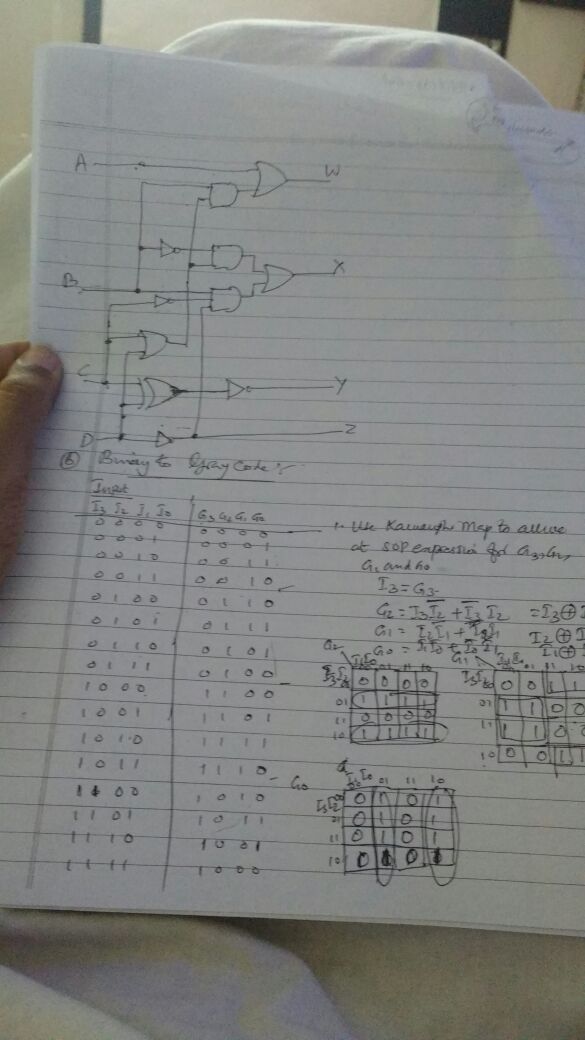 A
W
X
B
C
Y
D
Z
⑥ Binary to Gray Code :-
Input
I3 I2 I1 I0 G3 G2 G1 G0
0 0 0 0 0 0 0 0
0 0 0 1 0 0 0 1
0 0 1 0 0 0 1 1
0 0 1 1 0 0 1 0
0 1 0 0 0 1 1 0
0 1 0 1 0 1 1 1
0 1 1 0 0 1 0 1
0 1 1 1 0 1 0 0
1 0 0 0 1 1 0 0
1 0 0 1 1 1 0 1
1 0 1 0 1 1 1 1
1 0 1 1 1 1 1 0
1 1 0 0 1 0 1 0
1 1 0 1 1 0 1 1
1 1 1 0 1 0 0 1
1 1 1 1 1 0 0 0
Use Karnaugh Map to arrive
at SOP expression for G3, G2,
G1 and G0
I3 = G3
G2 = I3 I̅2 + I̅3 I2 = I3 ⊕
G1 = I2 ⊕
G0 = I1 ⊕
G2 I1 I0
I3 I2 00 01 11 10
00 0 0 0 0
01 1 1 1 1
11 0 0 0 0
10 1 1 1 1
G1 I1 I0
I3 I2 00 01 11 10
00 0 0 1 1
01 1 1 0 0
11 1 1 0 0
10 0 0 1 1
G0 I1 I0
I3 I2 00 01 11 10
00 0 1 0 1
01 0 1 0 1
11 0 1 0 1
10 0 1 0 1